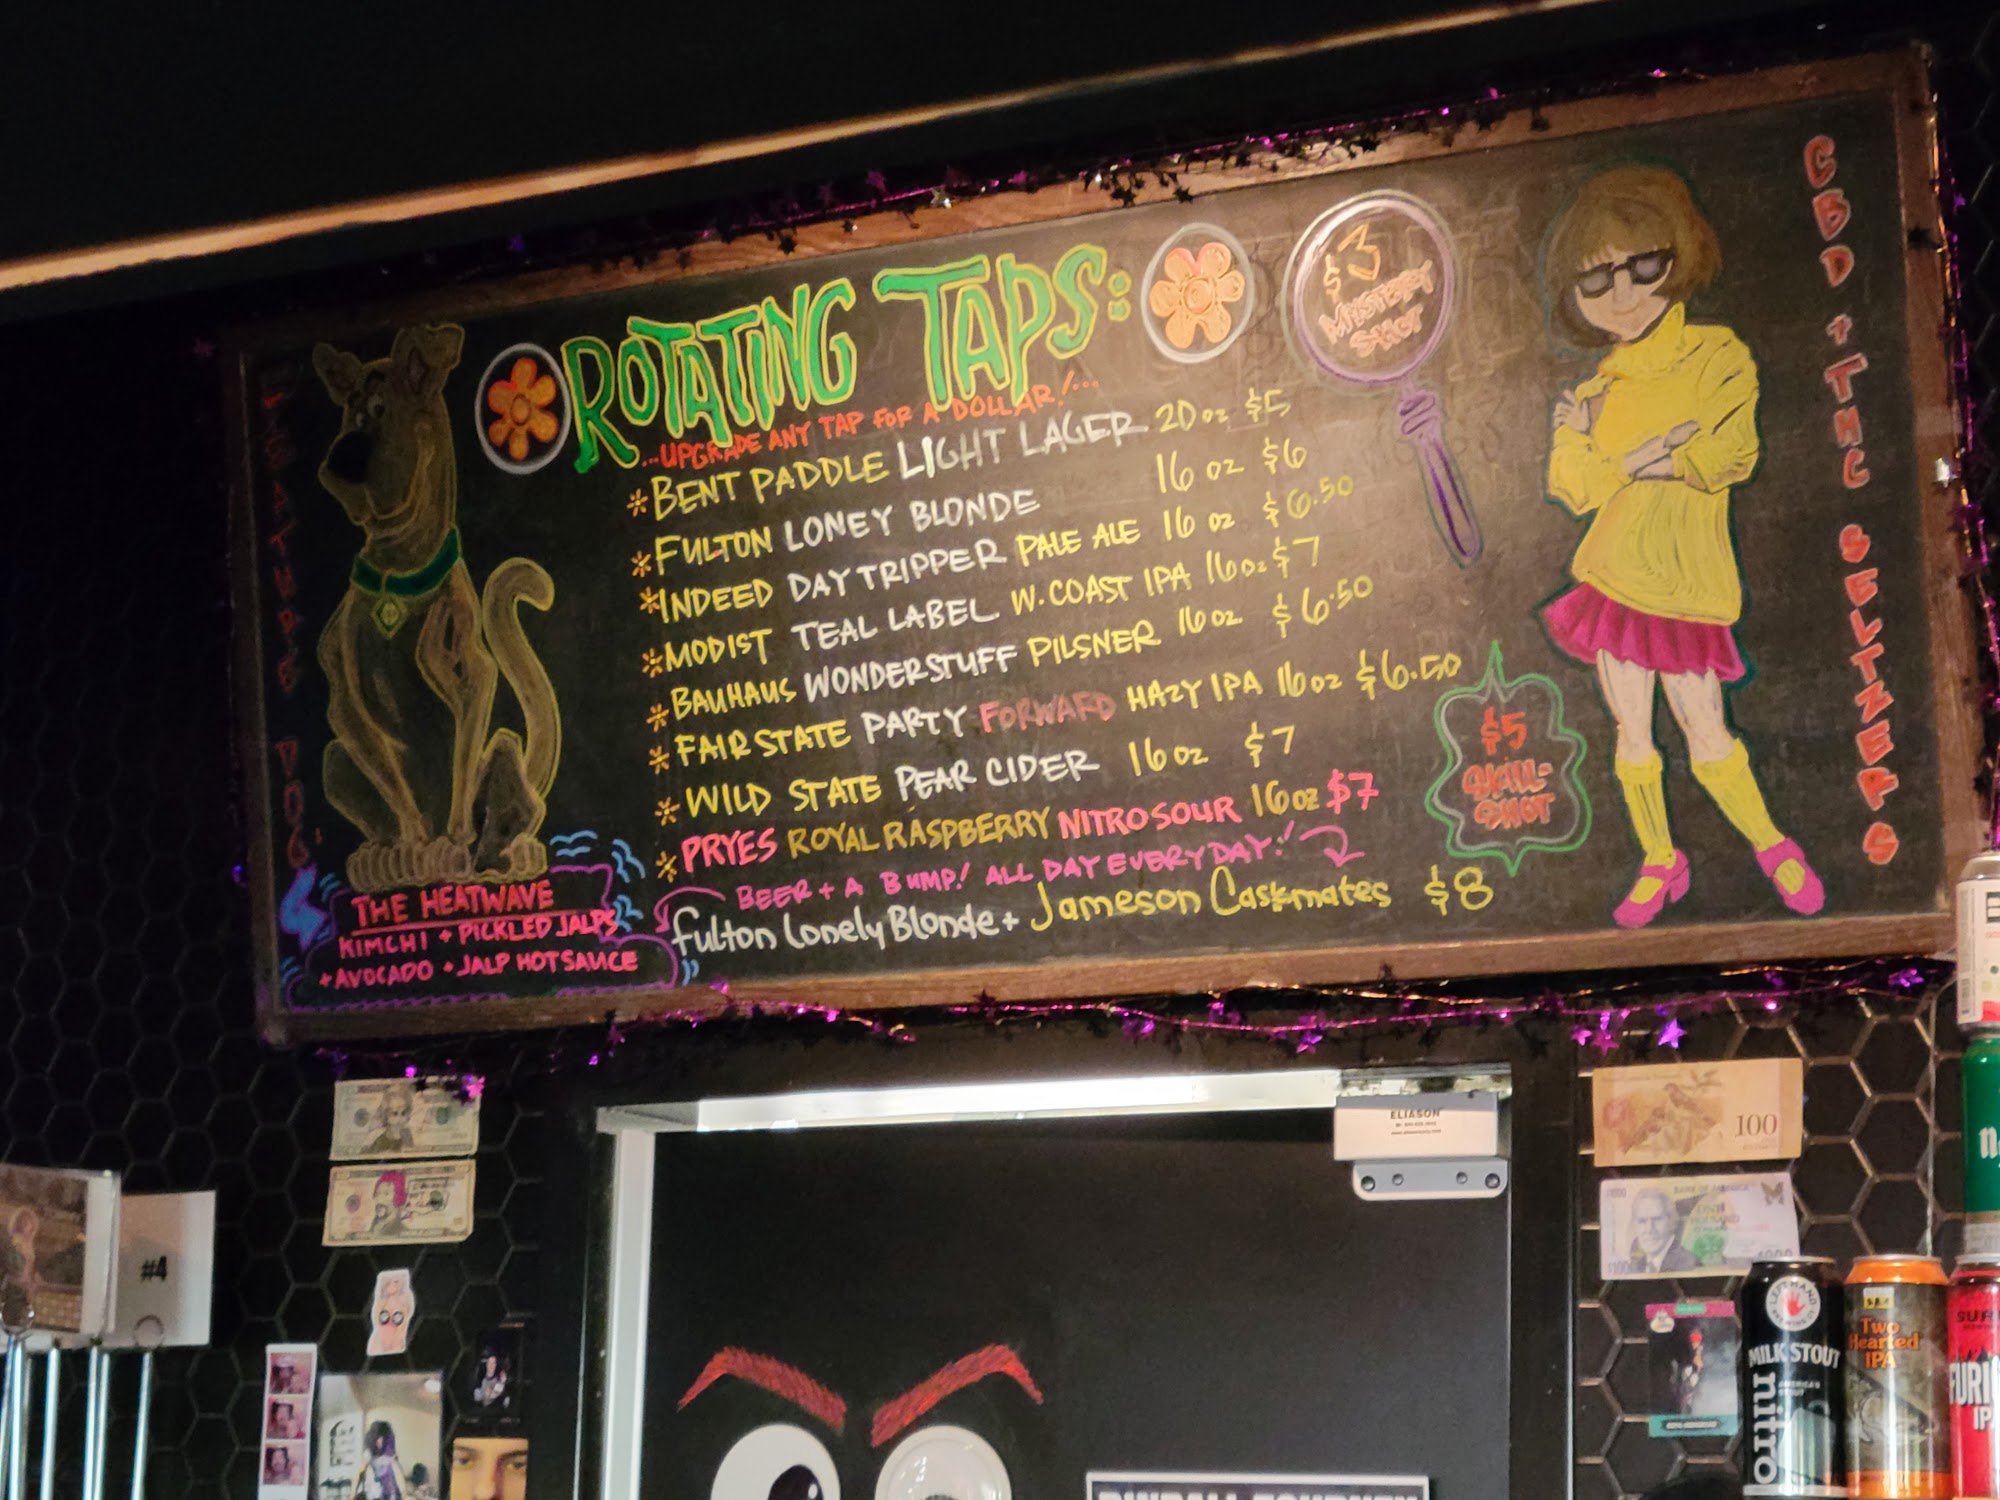 ROTATING TAPS:
...UPGRADE ANY TAP FOR A DOLLAR!...
*BENT PADDLE LIGHT LAGER 20 oz $5
*FULTON LONEY BLONDE 16 oz $6
*INDEED DAYTRIPPER PALE ALE 16 oz $6.50
*MODIST TEAL LABEL W.COAST IPA 16oz $7
*BAUHAUS WONDERSTUFF PILSNER 16oz $6.50
*FAIR STATE PARTY FORWARD HAZY IPA 16oz $6.50
*WILD STATE PEAR CIDER 16oz $7
*PRYES ROYAL RASPBERRY NITRO SOUR 16oz $7
BEER + A BUMP! ALL DAY EVERYDAY!
Fulton Lonely Blonde + Jameson Caskmates $8
$3
MYSTERY
SHOT
$5
SKILL-
SHOT
CBD + THC SELTZERS
FEATURE DOG
THE HEATWAVE
KIMCHI + PICKLED JALPS
+ AVOCADO + JALP HOT SAUCE
ELIASON
100
BANK OF JAMAICA
1000
#4
LEFT HAND
MILK STOUT
AMERICA'S
STOUT
nitro
Two
Hearted
IPA
SUR
FURI
IP